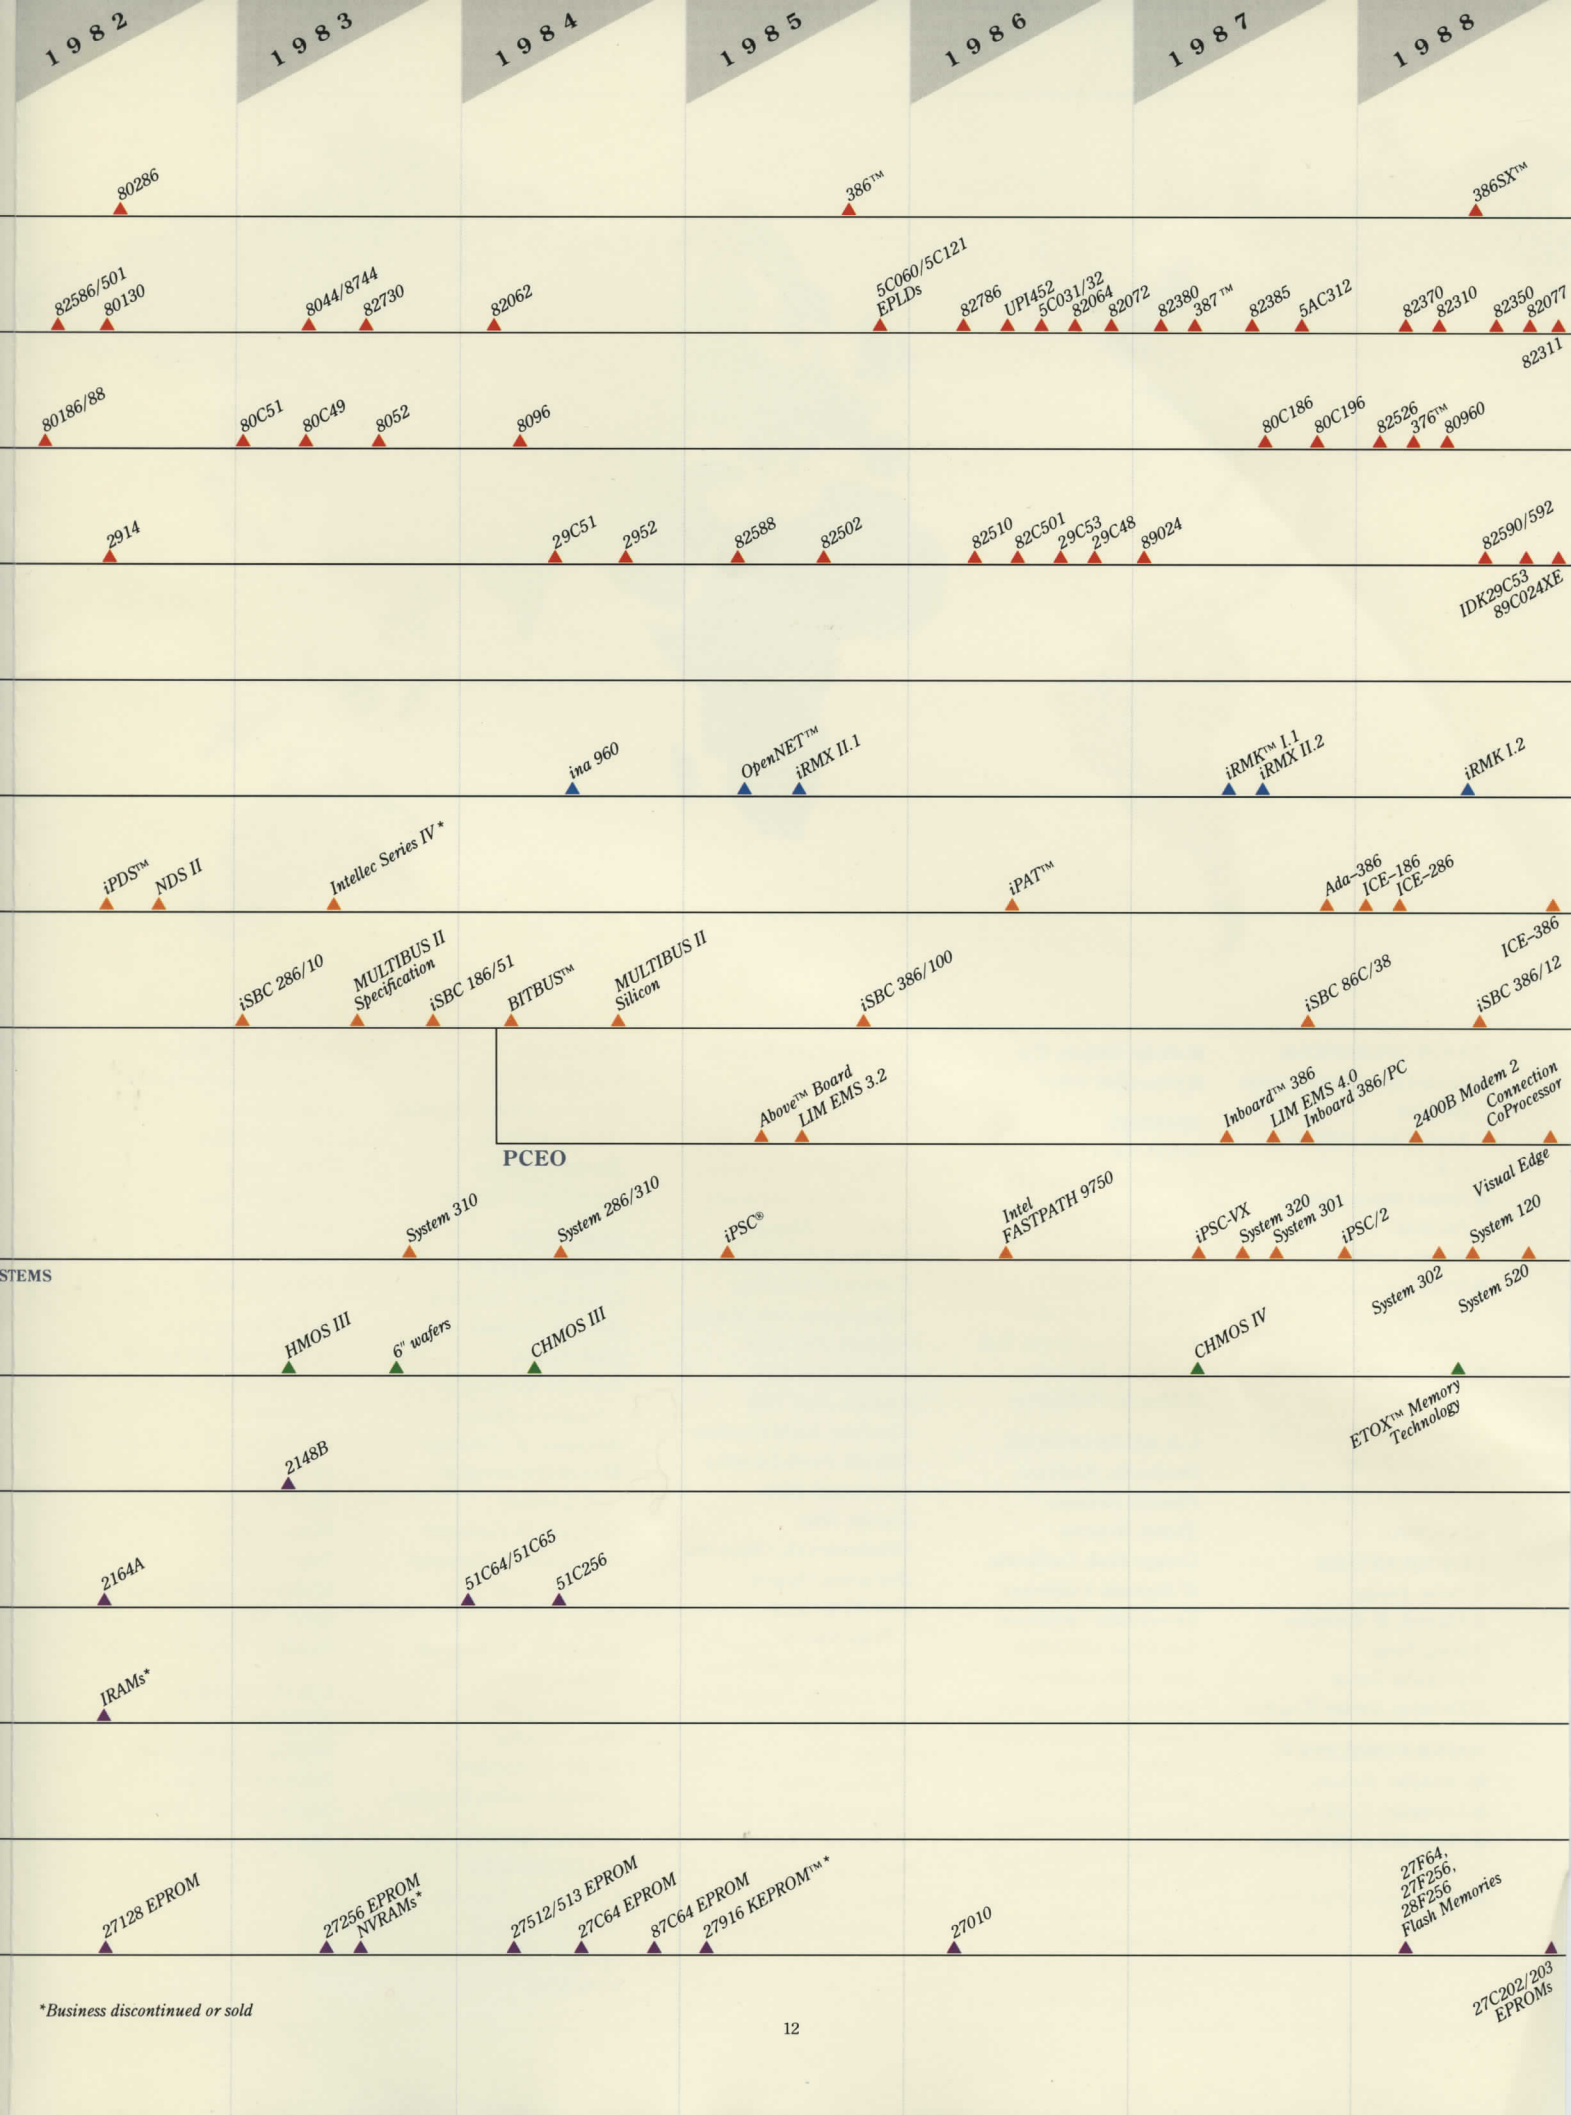 1982
1983
1984
1985
1986
1987
1988
80286
386™
386SX™
82586/501
80130
8044/8744
82730
82062
5C060/5C121
EPLDs
82786
UPI452
5C031/32
82064
82072
82380
387™
82385
5AC312
82370
82310
82350
82077
82311
80186/88
80C51
80C49
8052
8096
80C186
80C196
82526
376™
80960
2914
29C51
2952
82588
82502
82510
82C501
29C53
29C48
89024
82590/592
IDK29C53
89C024XE
ina 960
OpenNET™
iRMX II.1
iRMK™ I.1
iRMX II.2
iRMK I.2
iPDS™
NDS II
Intellec Series IV*
iPAT™
Ada–386
ICE–186
ICE–286
ICE–386
iSBC 286/10
MULTIBUS II
Specification
iSBC 186/51
BITBUS™
MULTIBUS II
Silicon
iSBC 386/100
iSBC 86C/38
iSBC 386/12
Above™ Board
LIM EMS 3.2
Inboard™ 386
LIM EMS 4.0
Inboard 386/PC
2400B Modem 2
Connection
CoProcessor
Visual Edge
PCEO
System 310
System 286/310
iPSC®
Intel
FASTPATH 9750
iPSC-VX
System 320
System 301
iPSC/2
System 120
System 302
System 520
STEMS
HMOS III
6" wafers
CHMOS III
CHMOS IV
ETOX™ Memory
Technology
2148B
2164A
51C64/51C65
51C256
IRAMs*
27128 EPROM
27256 EPROM
NVRAMs*
27512/513 EPROM
27C64 EPROM
87C64 EPROM
27916 KEPROM™*
27010
27F64,
27F256,
28F256
Flash Memories
27C202/203
EPROMs
*Business discontinued or sold
12